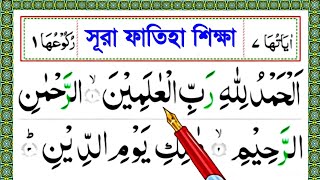 اٰيَاتُهَا ٧ সূরা ফাতিহা শিক্ষা رُكُوْعُهَا ١
اَلْحَمْدُ لِلّٰهِ رَبِّ الْعٰلَمِيْنَ ۙ﴿۱﴾ الرَّحْمٰنِ
الرَّحِيْمِ ۙ﴿۲﴾ مٰلِكِ يَوْمِ الدِّيْنِ ؕ﴿۳﴾